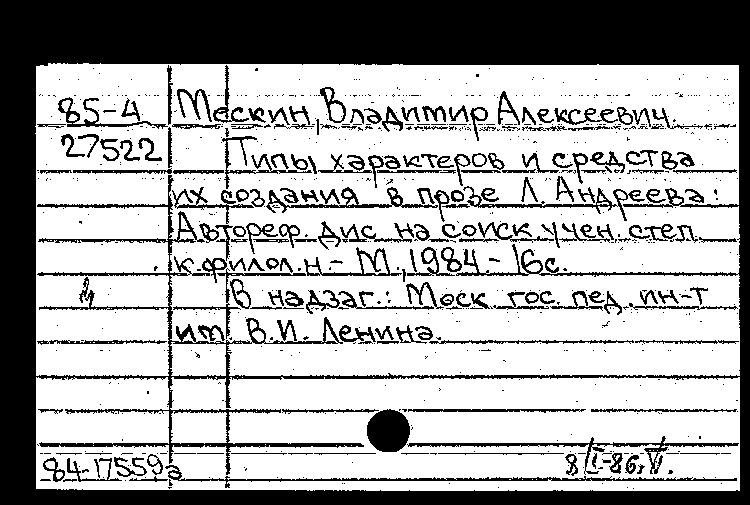 85-4 Мескин, Владимир Алексеевич.
27522 Типы характеров и средства
их создания в прозе Л. Андреева:
Автореф. дис. на соиск. учен. степ.
к.филол.н.- М., 1984.- 16с.
В надзаг.: Моск. гос. пед. ин-т
им. В.И. Ленина.
84-17559а 8/I-86, VI.